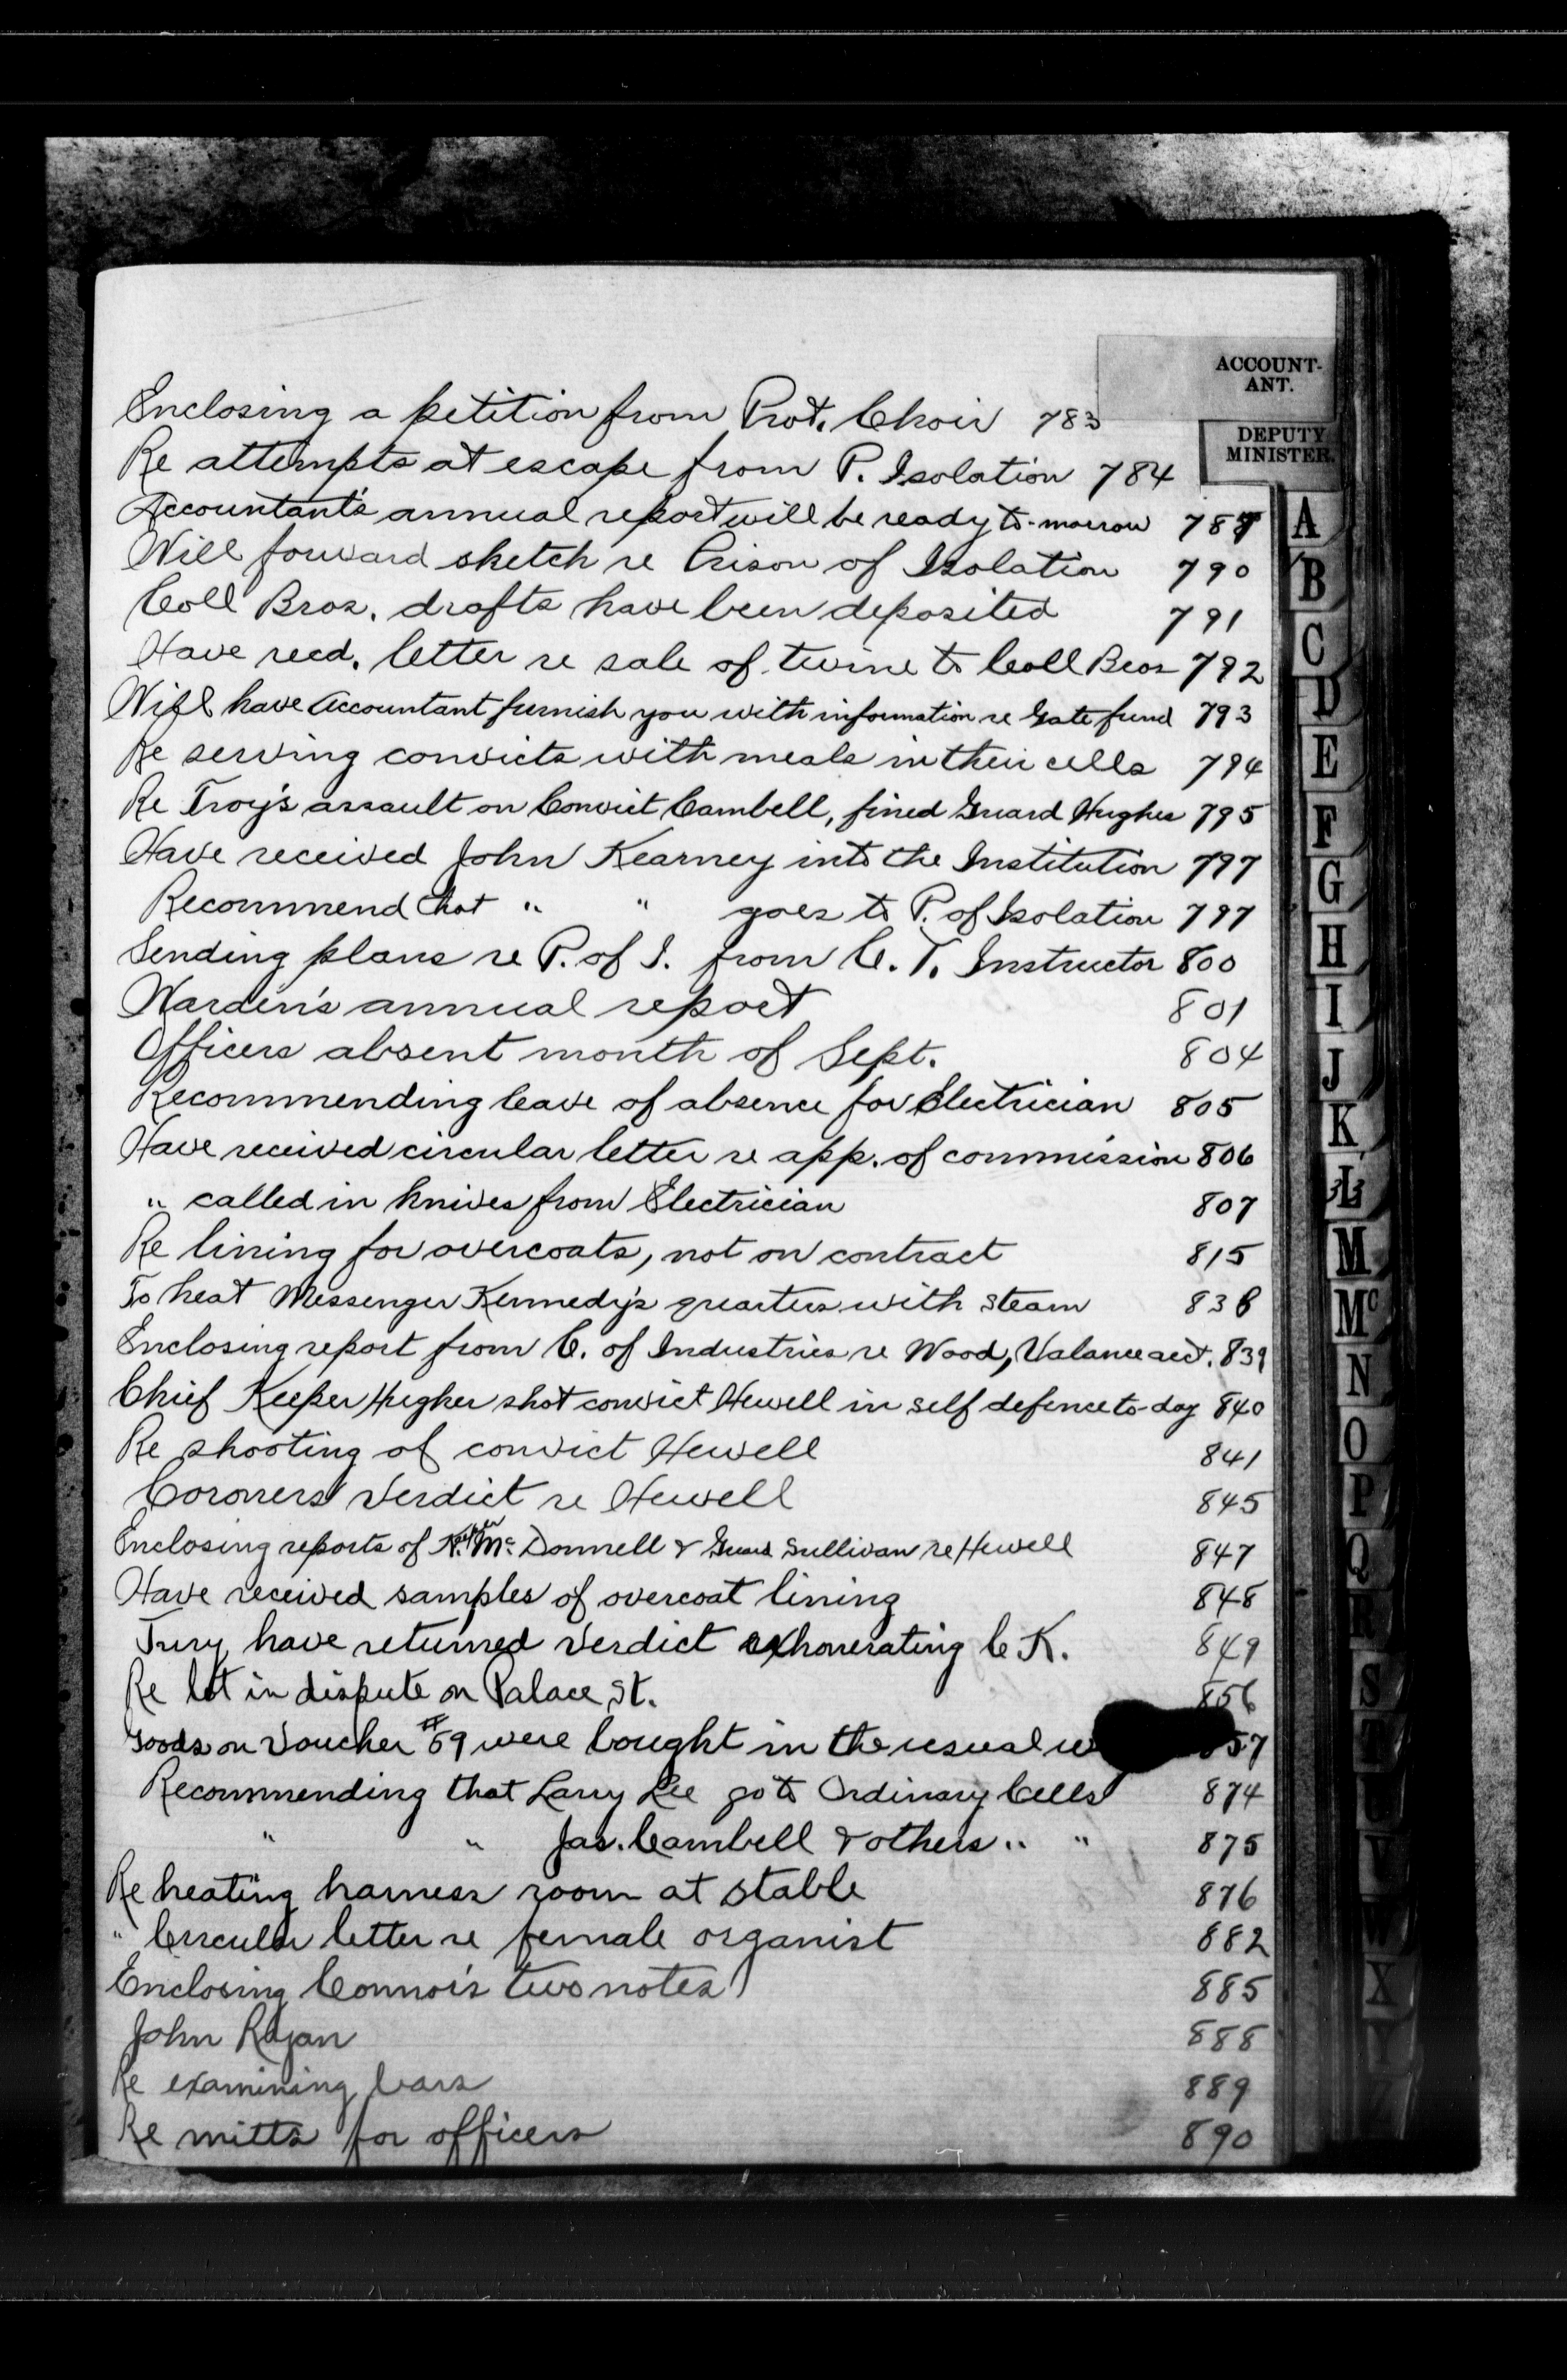 ACCOUNT-
ANT.
DEPUTY
MINISTER.
Enclosing a petition from Prot. Choir 783
Re attempts at escape from P. Isolation 784
Accountant's annual report will be ready to-morrow 787
Will forward sketch re Prison of Isolation 790
Coll Bros. drafts have been deposited 791
Have recd. letter re sale of twine to Coll Bros 792
Will have Accountant furnish you with information re Gate fund 793
Re serving convicts with meals in their cells 794
Re Troy's assault on Convict Cambell, fined Guard Hughes 795
Have received John Kearney into the Institution 797
Recommend that " " goes to P. of Isolation 797
Sending plans re P. of I. from C. T. Instructor 800
Warden's annual report 801
Officers absent month of Sept. 804
Recommending leave of absence for Electrician 805
Have received circular letter re app. of commission 806
" called in knives from Electrician 807
Re lining for overcoats, not on contract 815
To heat Messenger Kennedy's quarters with steam 838
Enclosing report from C. of Industries re Wood, Valance acct. 839
Chief Keeper Hughes shot convict Hewell in self defence to-day 840
Re shooting of convict Hewell 841
Coroners Verdict re Hewell 845
Enclosing reports of Keeper Mc Donnell & Guard Sullivan re Hewell 847
Have received samples of overcoat lining 848
Jury have returned Verdict exhonerating C K. 849
Re lot in dispute on Palace St. 856
Goods on Voucher # 69 were bought in the usual 57
Recommending that Larry Lee go to Ordinary Cells 874
" " Jas. Cambell & others " " 875
Re heating harness room at stable 876
" Circular letter re female organist 882
Enclosing Connor's two notes 885
John Ryan 888
Re examining bars 889
Re mitts for officers 890
A
B
C
D
E
F
G
H
I
J
K
L
M
Mc
N
O
P
Q
R
S
T
U
V
W
X
Y